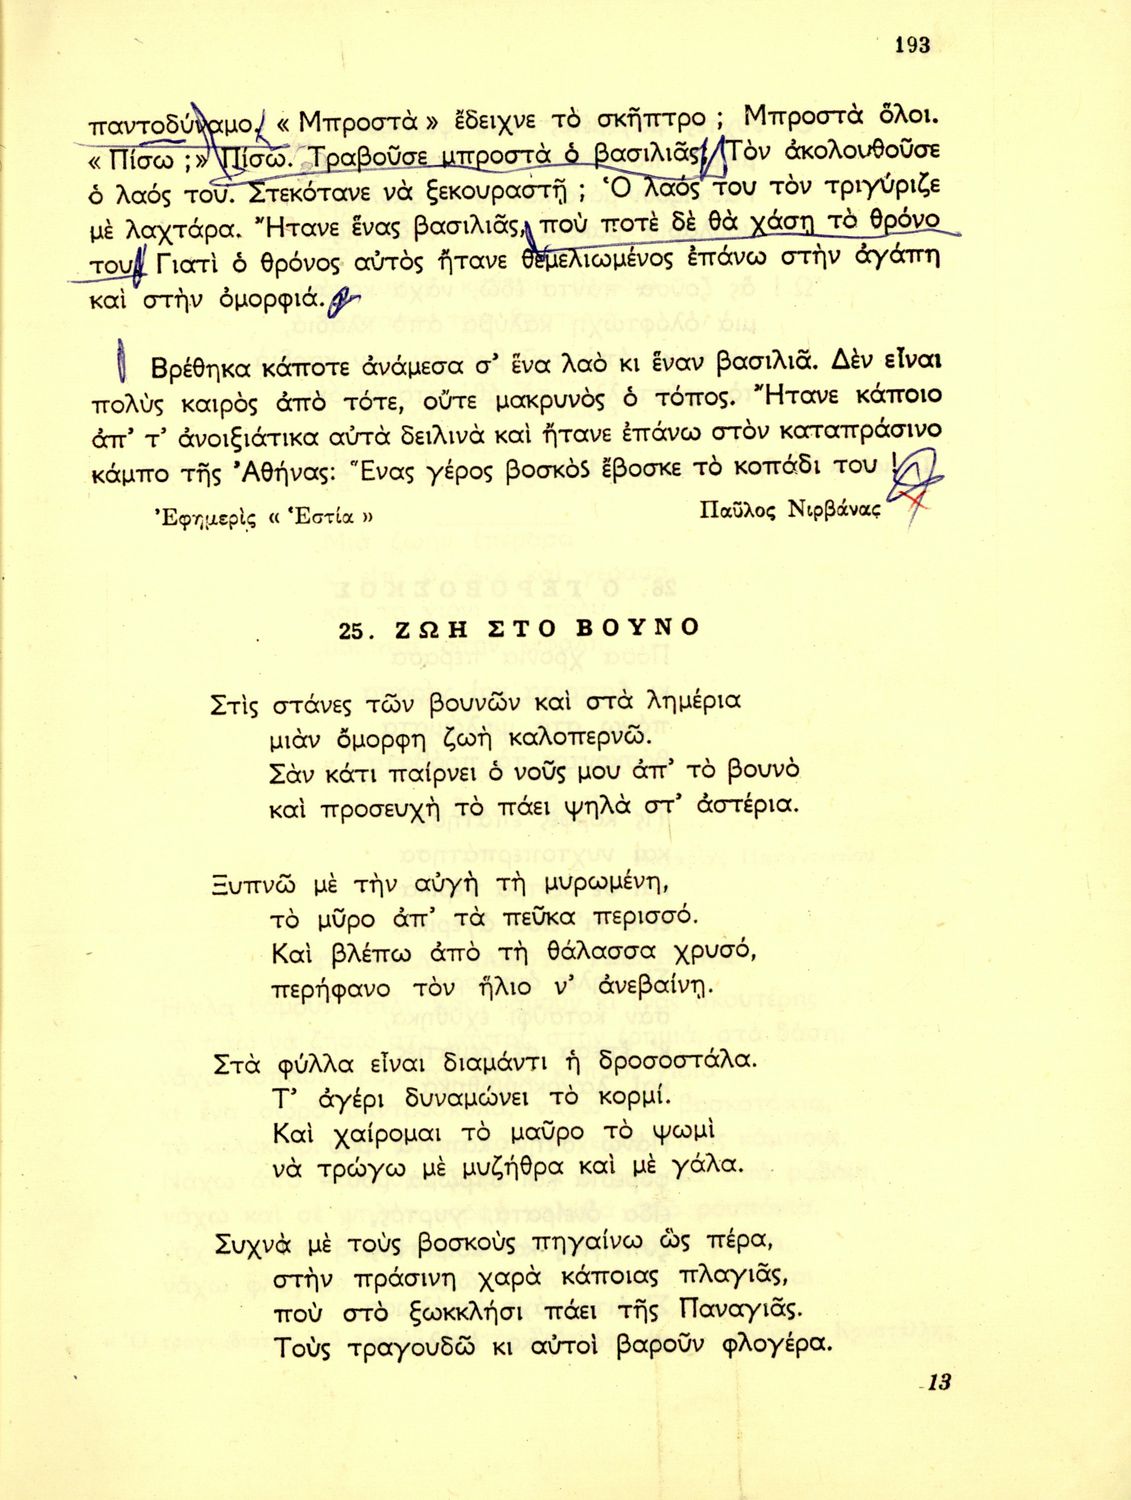 193
παντοδύναμο. « Μπροστὰ » ἔδειχνε τὸ σκῆπτρο ; Μπροστὰ ὅλοι.
« Πίσω ;» Πίσω. Τραβοῦσε μπροστὰ ὁ βασιλιᾶς. Τὸν ἀκολουθοῦσε
ὁ λαός του. Στεκότανε νὰ ξεκουραστῇ ; Ὁ λαός του τὸν τριγύριζε
μὲ λαχτάρα. Ἤτανε ἕνας βασιλιᾶς, ποὺ ποτὲ δὲ θὰ χάσῃ τὸ θρόνο
του. Γιατὶ ὁ θρόνος αὐτὸς ἤτανε θεμελιωμένος ἐπάνω στὴν ἀγάπη
καὶ στὴν ὀμορφιά.
Βρέθηκα κάποτε ἀνάμεσα σ' ἕνα λαὸ κι ἕναν βασιλιᾶ. Δὲν εἶναι
πολὺς καιρὸς ἀπὸ τότε, οὔτε μακρυνὸς ὁ τόπος. Ἤτανε κάποιο
ἀπ' τ' ἀνοιξιάτικα αὐτὰ δειλινὰ καὶ ἤτανε ἐπάνω στὸν καταπράσινο
κάμπο τῆς Ἀθήνας: Ἕνας γέρος βοσκὸς ἔβοσκε τὸ κοπάδι του !
Ἐφημερὶς « Ἑστία »
Παῦλος Νιρβάνας
25. ΖΩΗ ΣΤΟ ΒΟΥΝΟ
Στὶς στάνες τῶν βουνῶν καὶ στὰ λημέρια
μιὰν ὄμορφη ζωὴ καλοπερνῶ.
Σὰν κάτι παίρνει ὁ νοῦς μου ἀπ' τὸ βουνὸ
καὶ προσευχὴ τὸ πάει ψηλὰ στ' ἀστέρια.
Ξυπνῶ μὲ τὴν αὐγὴ τὴ μυρωμένη,
τὸ μῦρο ἀπ' τὰ πεῦκα περισσό.
Καὶ βλέπω ἀπὸ τὴ θάλασσα χρυσό,
περήφανο τὸν ἥλιο ν' ἀνεβαίνῃ.
Στὰ φύλλα εἶναι διαμάντι ἡ δροσοστάλα.
Τ' ἀγέρι δυναμώνει τὸ κορμί.
Καὶ χαίρομαι τὸ μαῦρο τὸ ψωμὶ
νὰ τρώγω μὲ μυζήθρα καὶ μὲ γάλα.
Συχνὰ μὲ τοὺς βοσκοὺς πηγαίνω ὣς πέρα,
στὴν πράσινη χαρὰ κάποιας πλαγιᾶς,
ποὺ στὸ ξωκκλήσι πάει τῆς Παναγιᾶς.
Τοὺς τραγουδῶ κι αὐτοὶ βαροῦν φλογέρα.
13